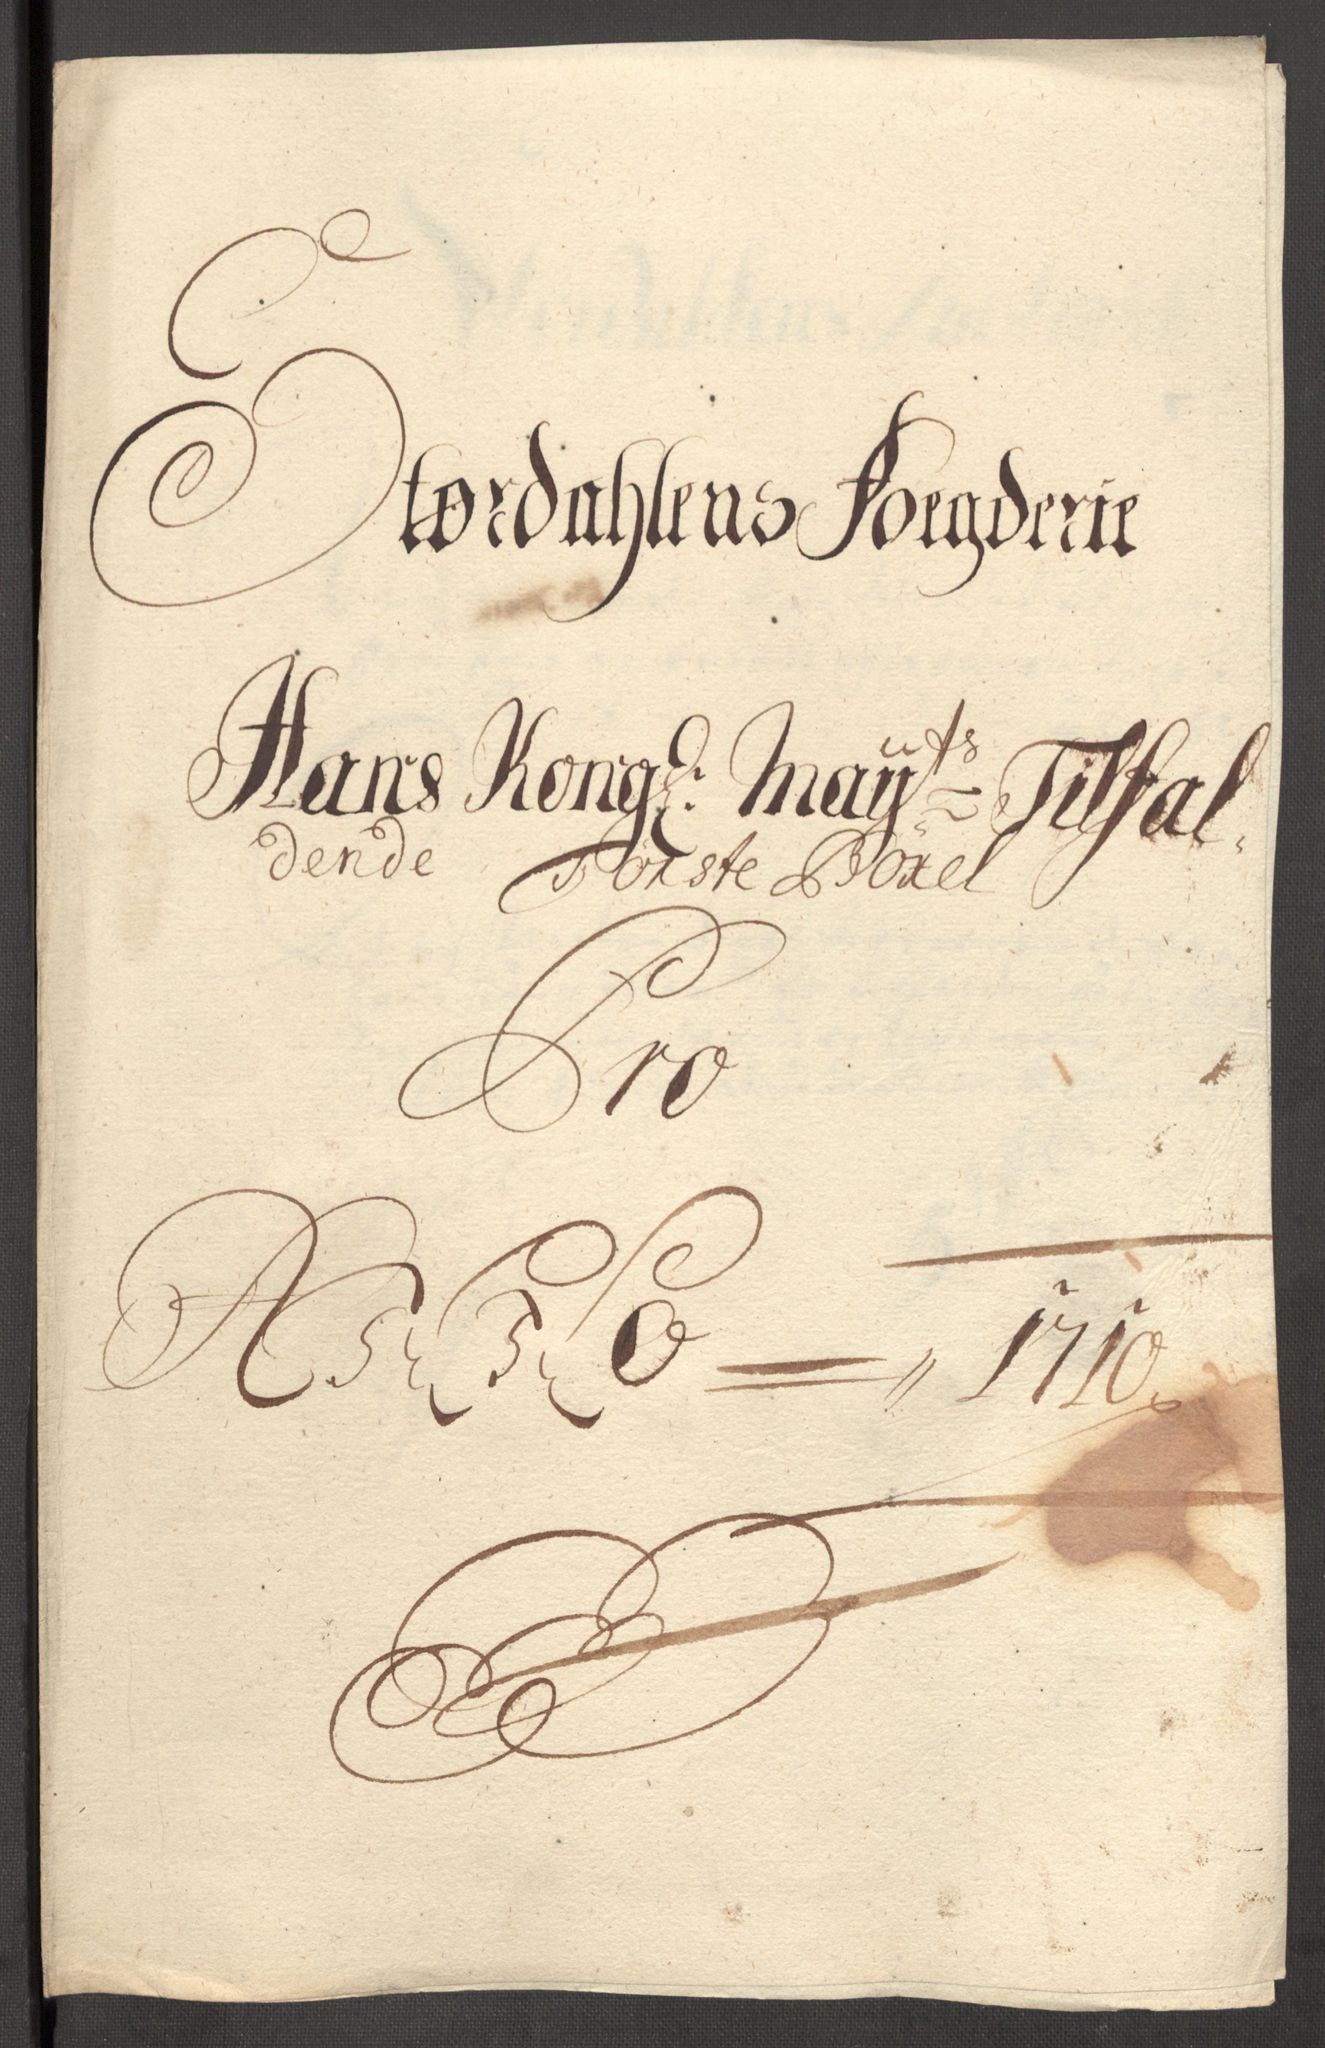 Størdahlens Foegderie
Hans Kongl: Mayts Tilfal-
dende Første Böxel
Pro
Anno 1710